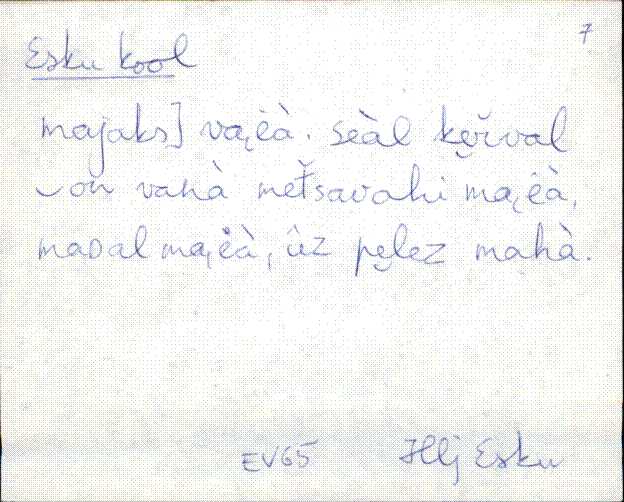 7
Esku kool
majaks] va̭i̯èà. sèàl kẹr̆val
‿on vanà metsavahi ma̭i̯èà,
maDal ma̭i̯èà, ùz pẹlez mahà.
EV65 Hlj Esku